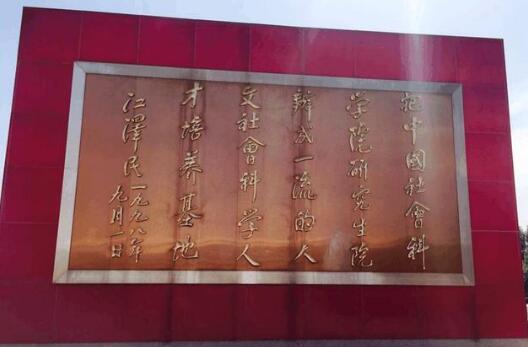 把中國社會科
學院研究生院
辦成一流的人
文社會科學人
才培养基地
江澤民一九九八年
九月一日